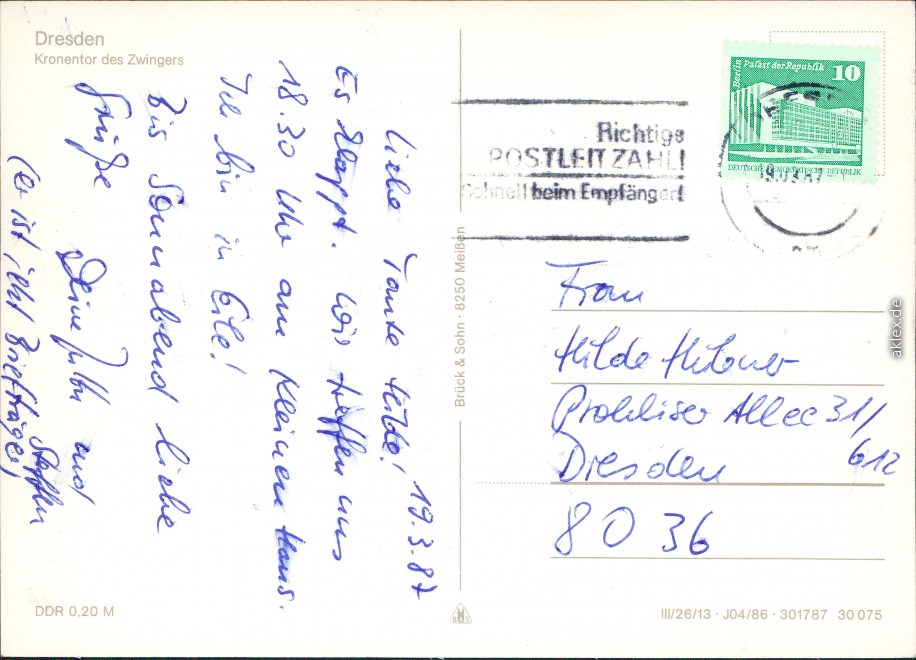 Dresden
Kronentor des Zwingers
Liebe Tante Hilde! 19.3.87
Es klappt. Wir treffen uns
18.30 Uhr am Kleinen Haus.
Ich bin in Eile!
Bis Sonnabend liebe
Grüße Deine und Steffen
(er ist jetzt Briefträger)
DDR 0,20 M
Brück & Sohn · 8250 Meißen
Richtige
POSTLEITZAHL!
Schnell beim Empfänger!
Berlin Palast der Republik 10
DEUTSCHE DEMOKRATISCHE REPUBLIK
19.03.87
Frau
Hilde Hübner
Prohliser Allee 31/
612
Dresden
8036
III/26/13 · J04/86 · 301787 30 075
aklex.de